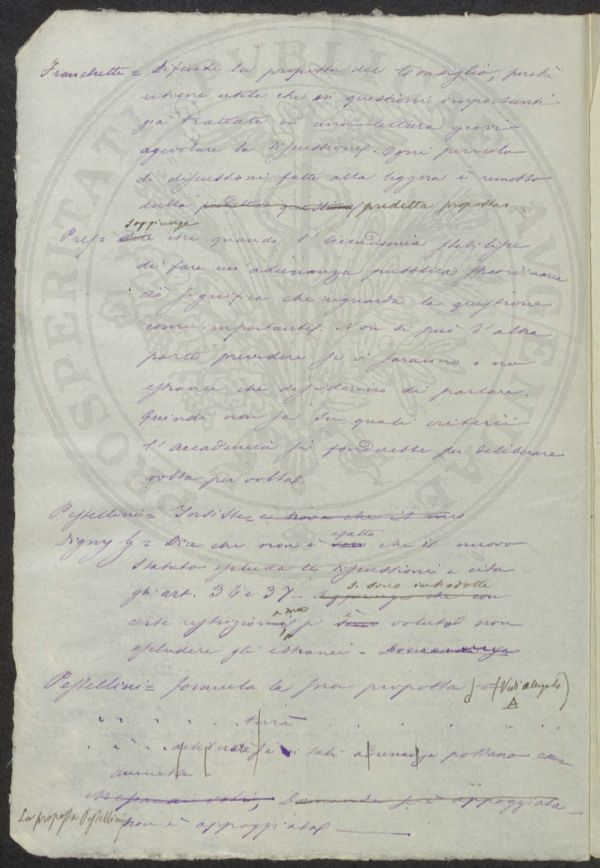 Franchetti = Difende la proposta del Consiglio, perchè
ritiene utile che in questioni importanti
già trattate in una lettura giovi
agevolare la discussione. Ogni pericolo
di discussioni fatte alla leggera è rimosso
dalla predetta questione predetta proposta
soggiunge
Pres = che quando l'Accademia stabilisce
di fare un'adunanza pubblica straordinaria
ciò significa che riguarda la questione
come importante. Non si può d'altra
parte prevedere se vi saranno o no
estranei che desiderino di parlare.
Quindi non sa su quali criteri
l'Accademia si fonderebbe per deliberare
volta per volta.
Pestellini = Insiste e trova che il
esatto
Digny = Dice che non è che il nuovo
statuto escluda le discussioni e cita
si sono introdotte
gli art. 36 e 37 - aggiunge che con
certe restrizioni ma si è voluto non
escludere gli estranei -
Pestellini = formula la sua proposta (Vedi allegato)
A
turà
se in tali adunanze possano come
Domanda se è appoggiata
La proposta Pestellini
non è appoggiata